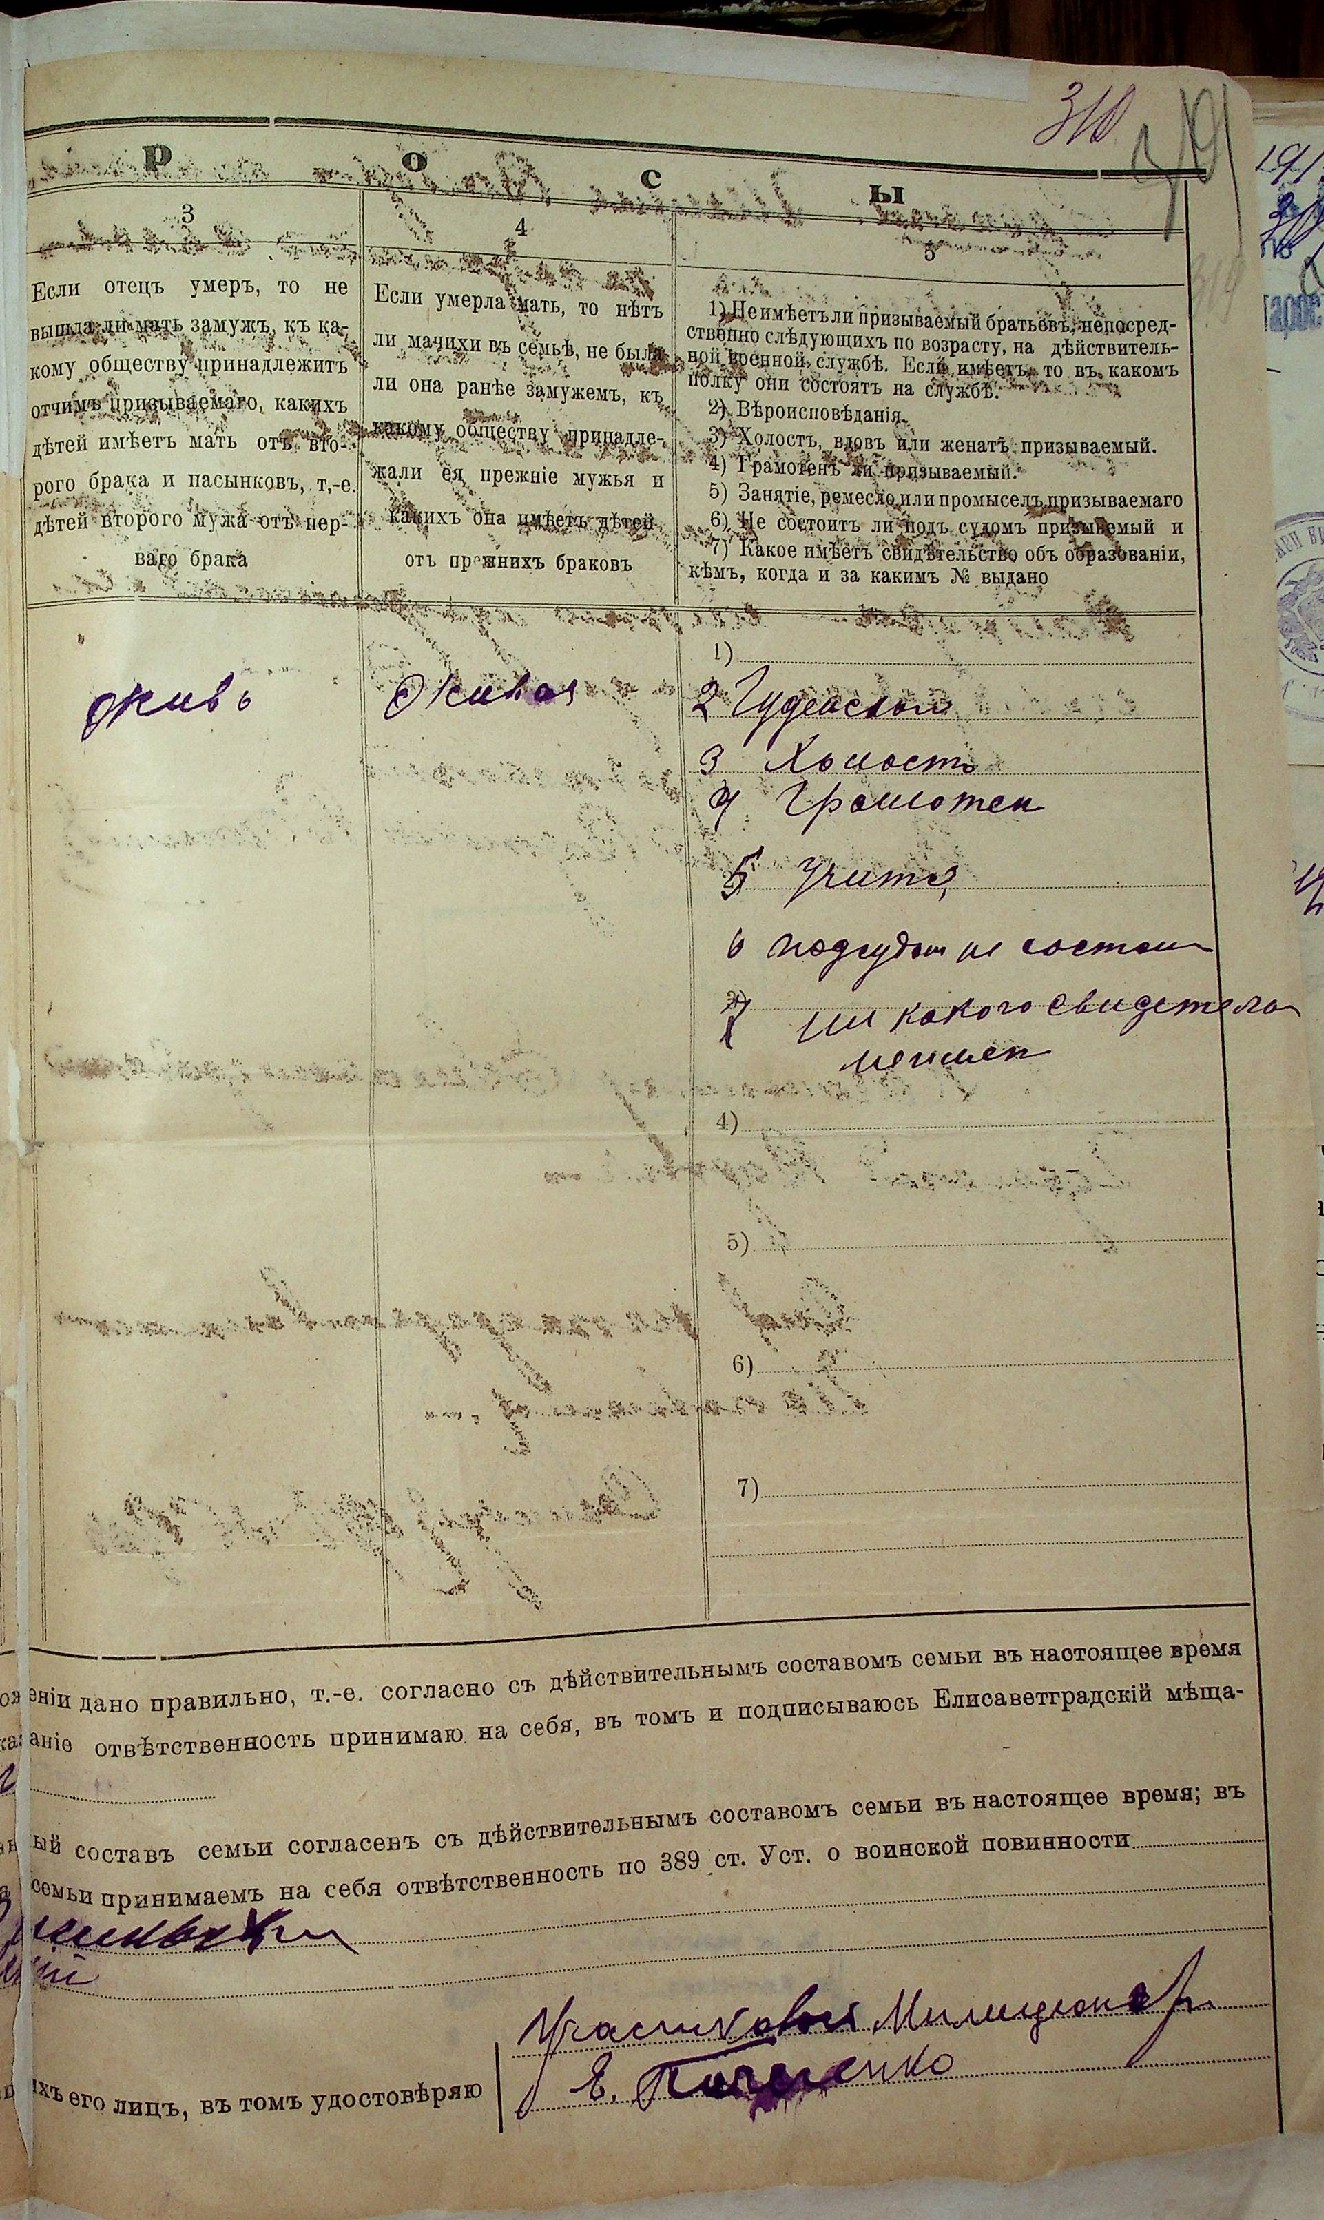 310
р о с ы
3
4
5
Если отецъ умеръ, то не
вышла ли мать замужъ, къ ка-
кому обществу принадлежитъ
отчимъ призываемаго, какихъ
дѣтей имѣетъ мать отъ вто-
рого брака и пасынковъ, т.-е.
дѣтей второго мужа отъ пер-
ваго брака
Если умерла мать, то нѣтъ
ли мачихи въ семьѣ, не была
ли она ранѣе замужемъ, къ
какому обществу принадле-
жали ея прежніе мужья и
какихъ она имѣетъ дѣтей
отъ прежнихъ браковъ
1) Не имѣетъ ли призываемый братьевъ, непосред-
ственно слѣдующихъ по возрасту, на дѣйствитель-
ной военной службѣ. Если имѣетъ, то въ какомъ
полку они состоятъ на службѣ.
2) Вѣроисповѣданія.
3) Холостъ, вдовъ или женатъ призываемый.
4) Грамотенъ ли призываемый.
5) Занятіе, ремесло или промыселъ призываемаго
6) Не состоитъ ли подъ судомъ призываемый и
7) Какое имѣетъ свидѣтельство объ образованіи,
кѣмъ, когда и за какимъ № выдано
живъ
Живая
1)
2 Іудейском
3 Холостъ
4 Грамотен
5
6 подсудом не состоит
7 ни какого свидетела
неимеи
4)
5)
6)
7)
еніи дано правильно, т.-е. согласно съ дѣйствительнымъ составомъ семьи въ настоящее время
аніе отвѣтственность принимаю на себя, въ томъ и подписываюсь Елисаветградскій мѣща-
ый составъ семьи согласенъ съ дѣйствительнымъ составомъ семьи въ настоящее время; въ
семьи принимаемъ на себя отвѣтственность по 389 ст. Уст. о воинской повинности
Участковой Милиционер
ихъ его лицъ, въ томъ удостовѣряю
Е.